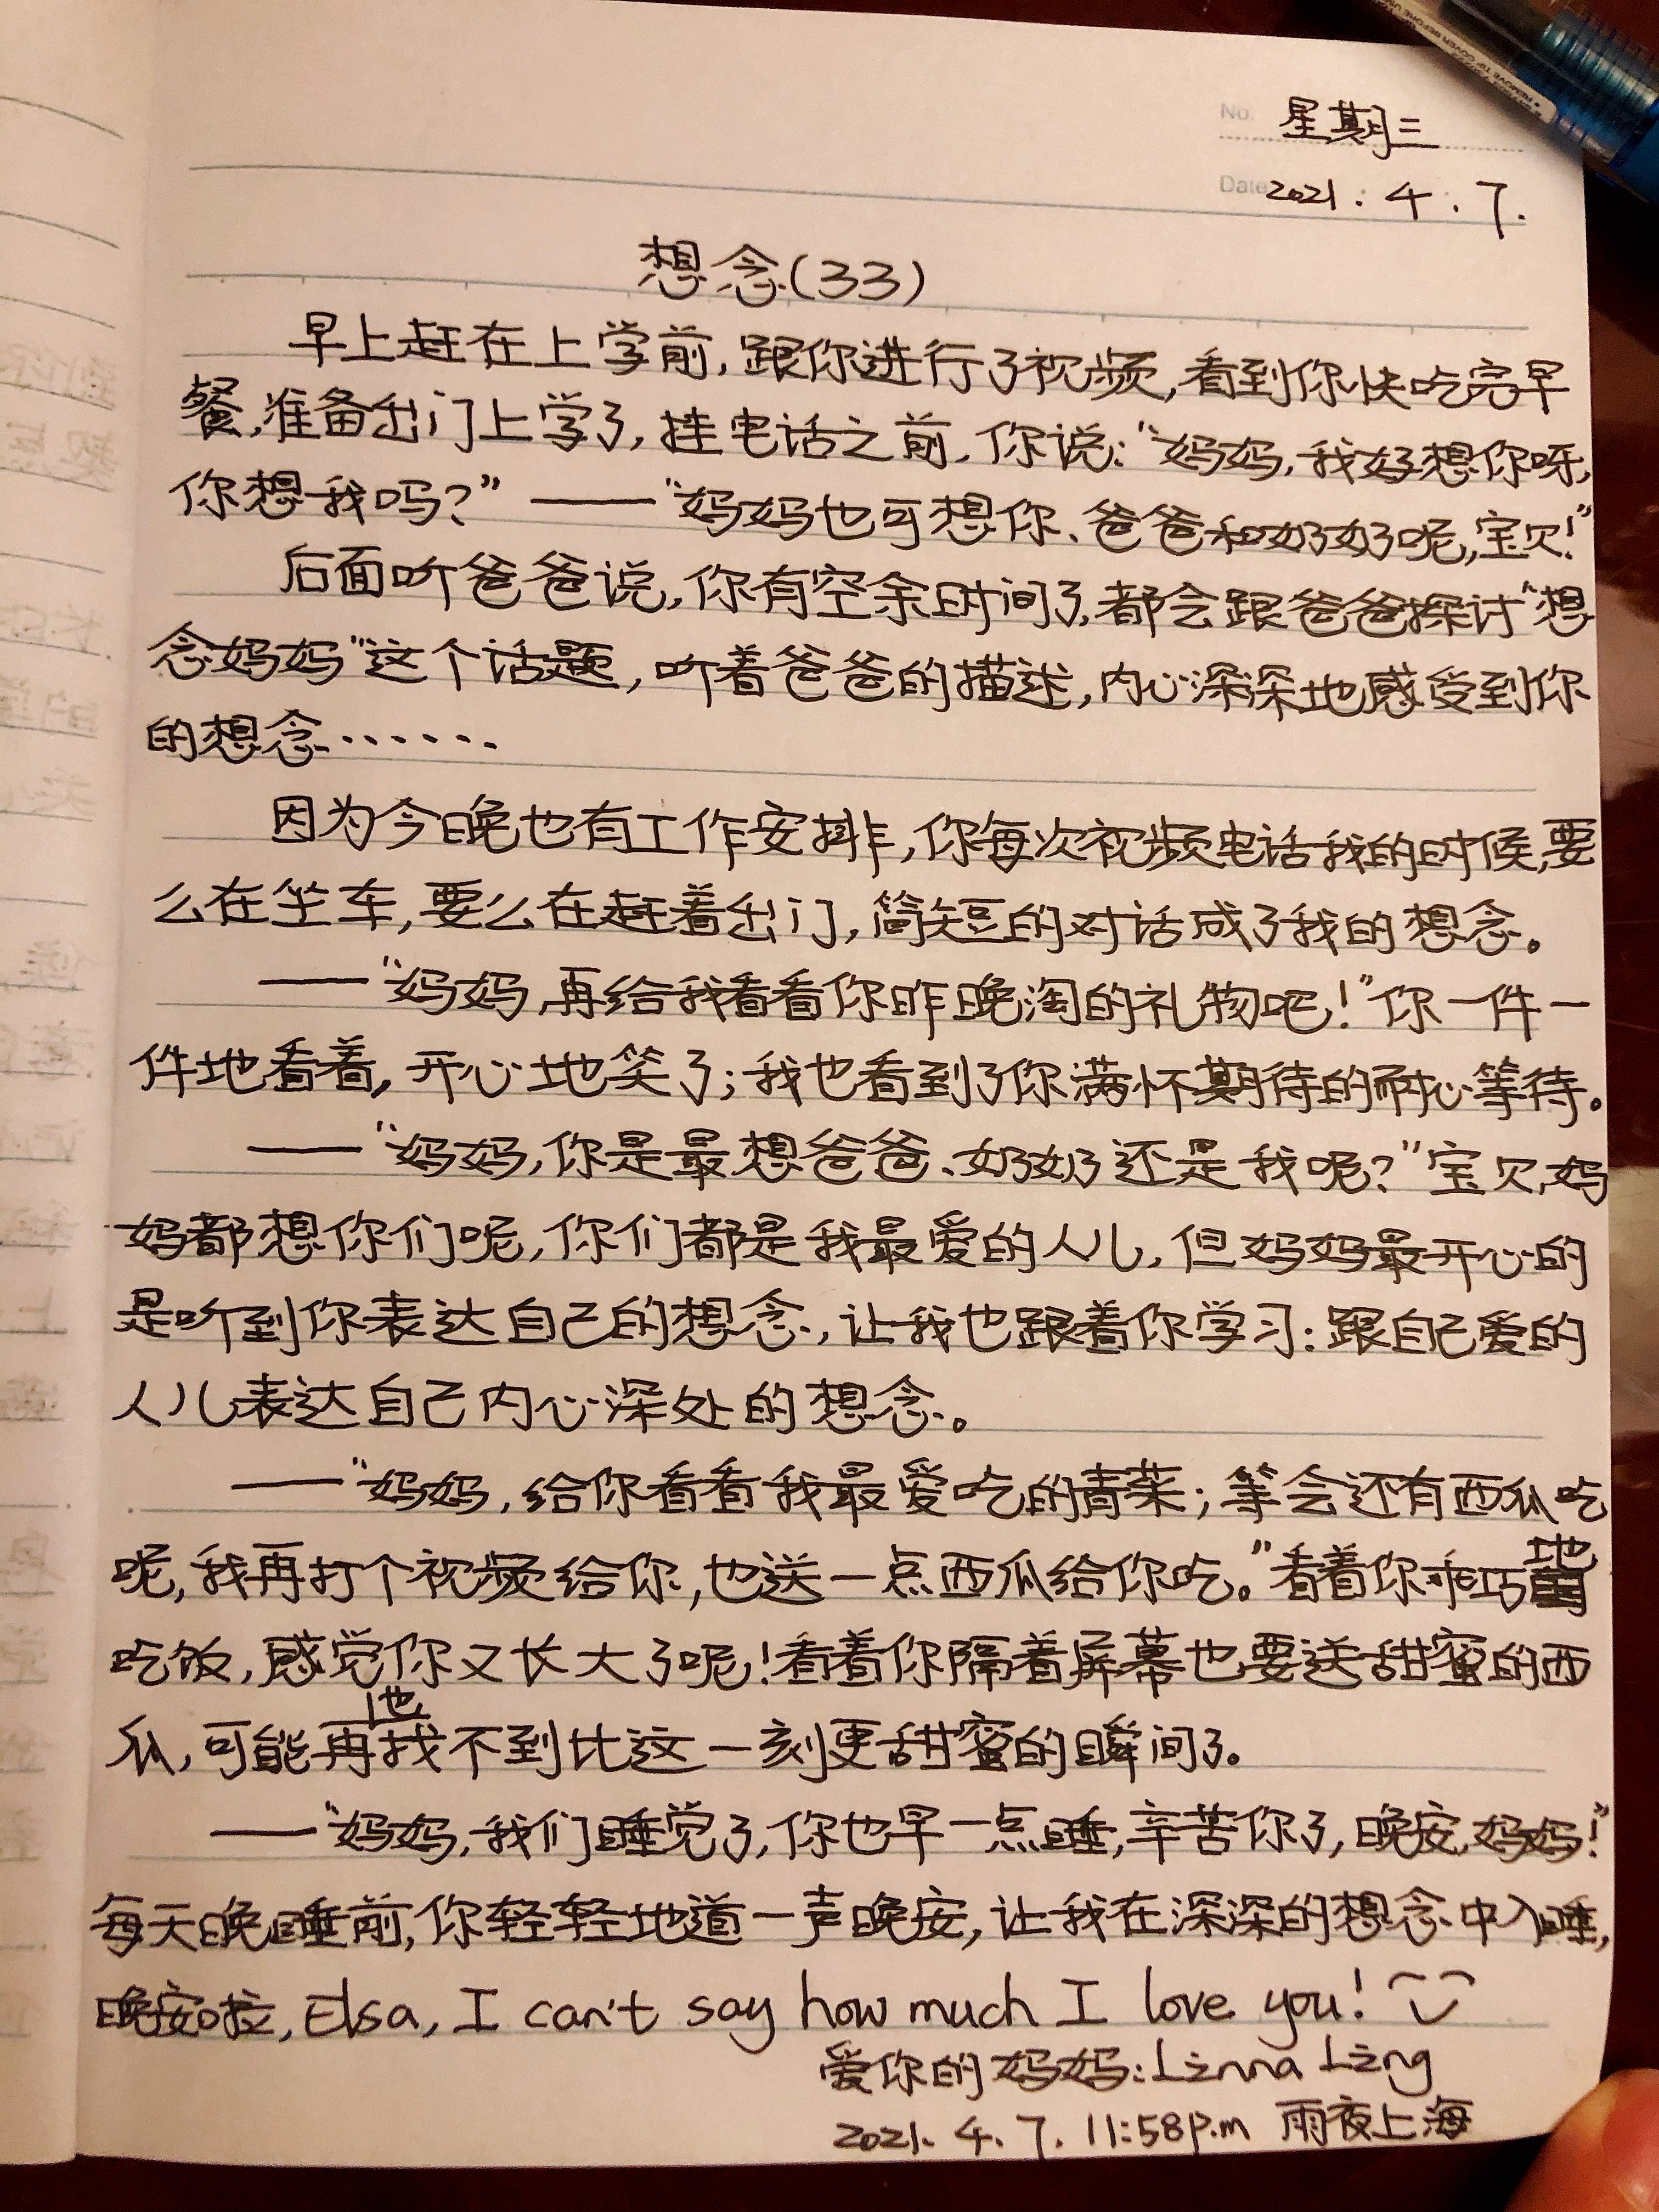 No. 星期三
Date 2021.4.7.
想念(33)
早上赶在上学前,跟你进行了视频,看到你快吃完早
餐,准备出门上学了,挂电话之前,你说:“妈妈,我好想你呀,
你想我吗?”——“妈妈也可想你、爸爸和奶奶呢,宝贝!”
后面听爸爸说,你有空余时间了,都会跟爸爸探讨“想
念妈妈”这个话题,听着爸爸的描述,内心深深地感受到你
的想念······
因为今晚也有工作安排,你每次视频电话我的时候,要
么在坐车,要么在赶着出门,简短的对话成了我的想念。
——“妈妈,再给我看看你昨晚淘的礼物吧!”你一件一
件地看着,开心地笑了;我也看到了你满怀期待的耐心等待。
——“妈妈,你是最想爸爸、奶奶还是我呢?”宝贝,妈
妈都想你们呢,你们都是我最爱的人儿,但妈妈最开心的
是听到你表达自己的想念,让我也跟着你学习:跟自己爱的
人儿表达自己内心深处的想念。
——“妈妈,给你看看我最爱吃的青菜;等会还有西瓜吃
呢,我再打个视频给你,也送一点西瓜给你吃。”看着你乖巧地
吃饭,感觉你又长大了呢!看着你隔着屏幕也要送甜蜜的西
瓜,可能再也找不到比这一刻更甜蜜的瞬间了。
——“妈妈,我们睡觉了,你也早一点睡,辛苦你了,晚安,妈妈!”
每天晚睡前,你轻轻地道一声晚安,让我在深深的想念中入睡,
晚安啦,Elsa, I can't say how much I love you!
爱你的妈妈:Linna Ling
2021.4.7. 11:58p.m 雨夜上海